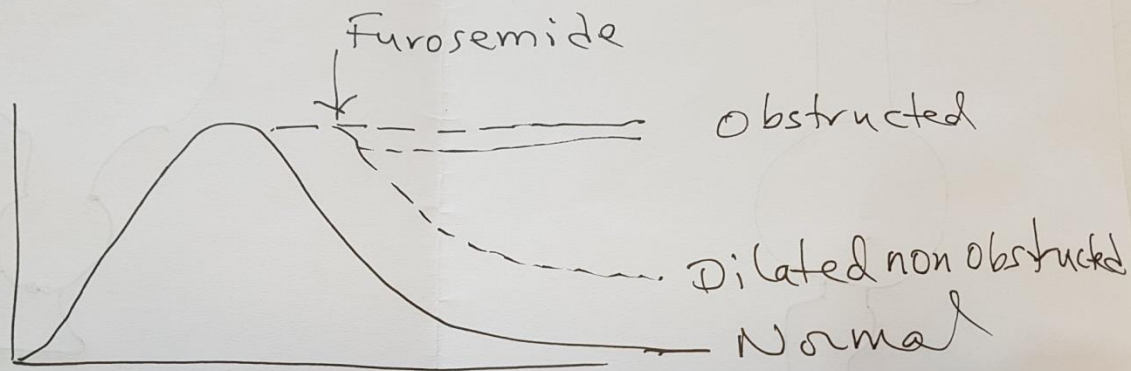 Furosemide
Obstructed
Dilated non Obstructed
Normal